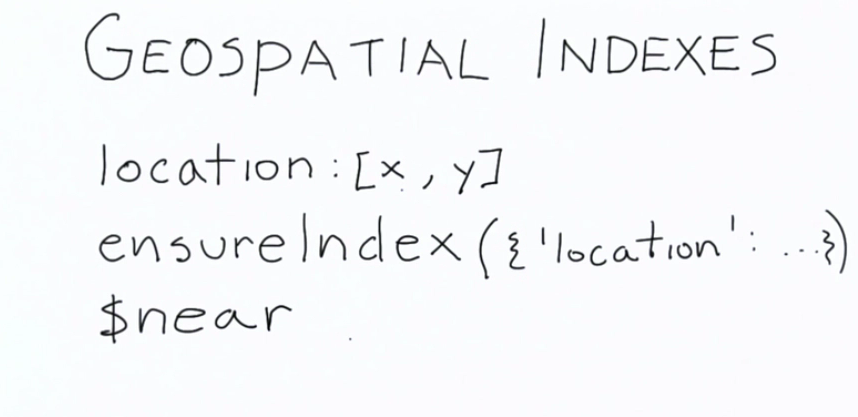 GEOSPATIAL INDEXES
location: [x, y]
ensureIndex({'location': ...})
$near